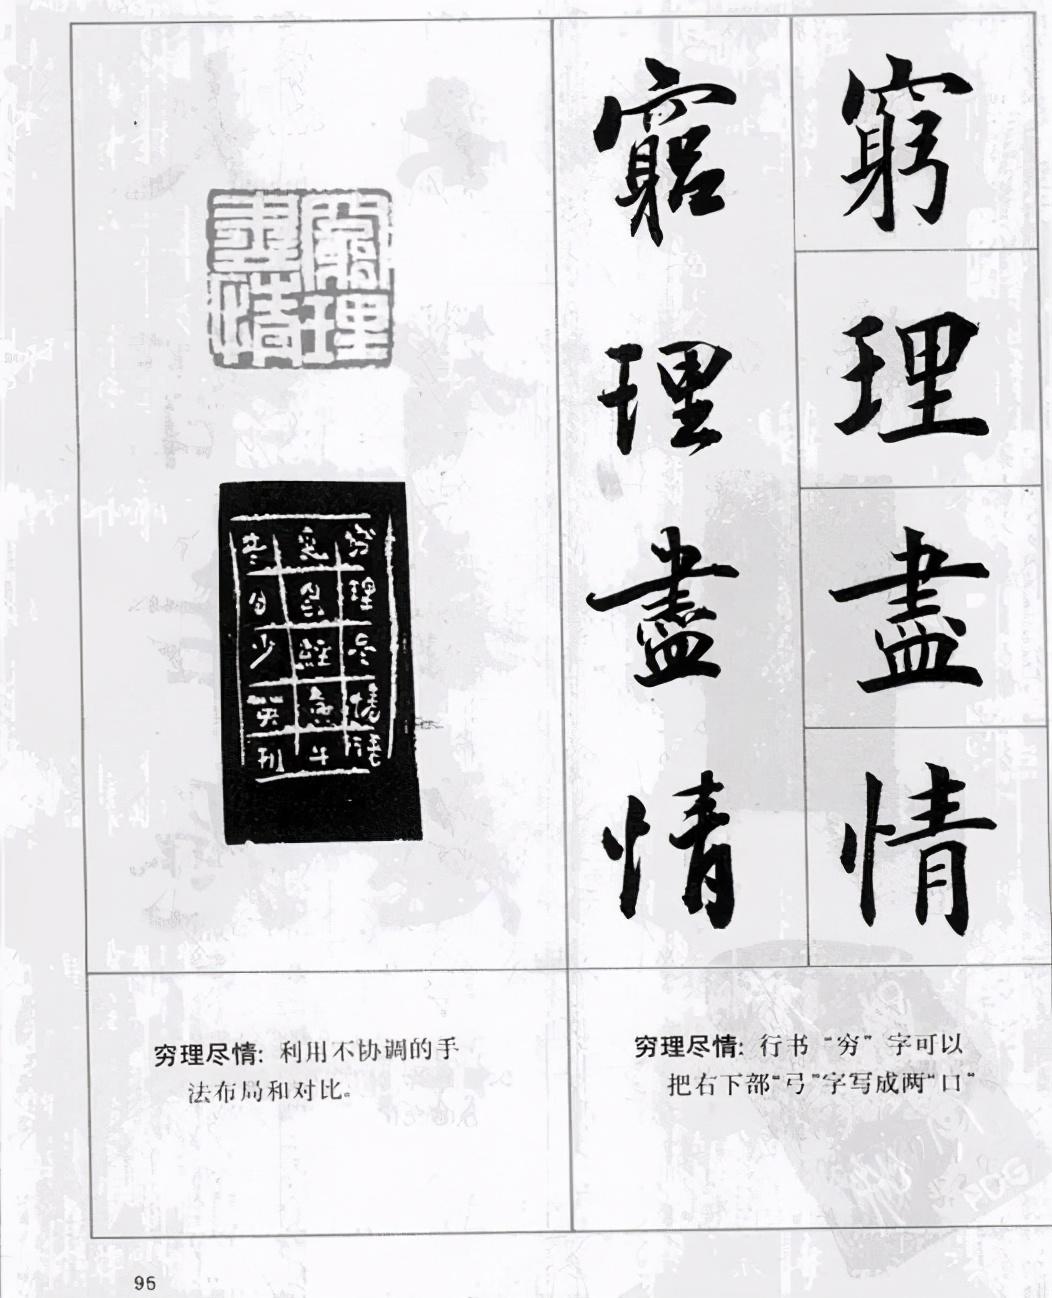 窮理盡情
竆理盡情
竆理
盡情
穷理尽情：利用不协调的手
法布局和对比。
穷理尽情：行书“穷”字可以
把右下部“弓”字写成两“口”
95